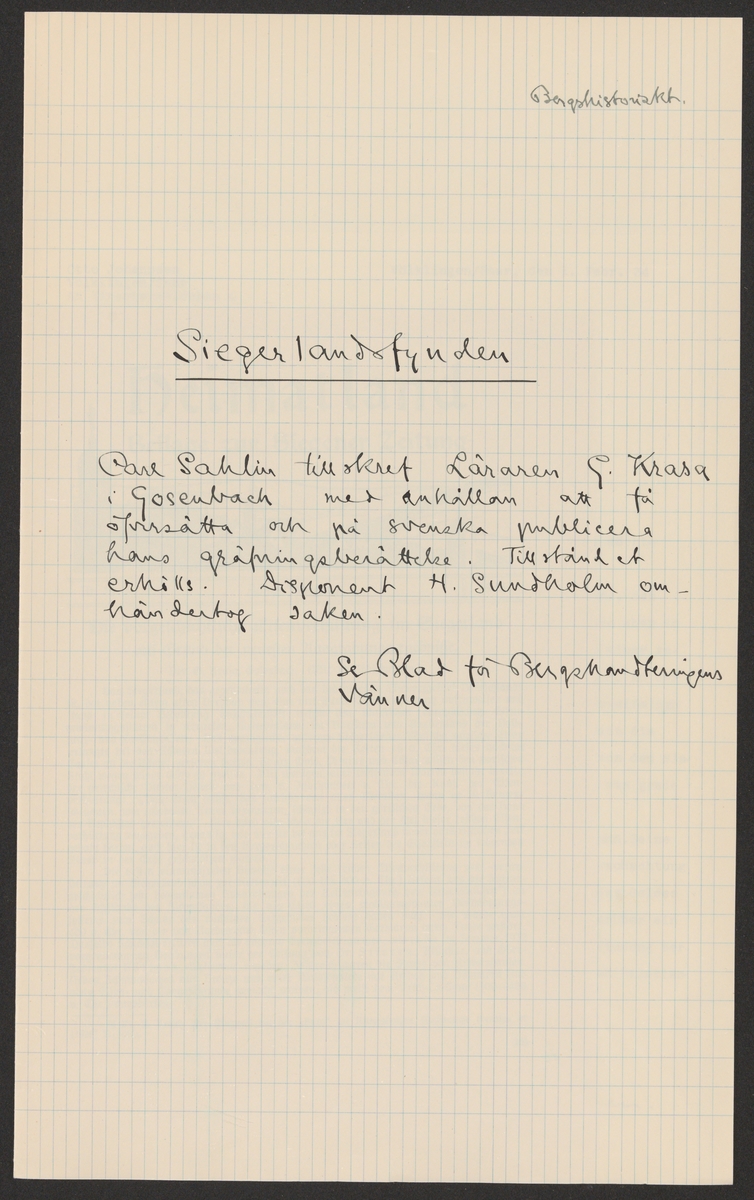 Bergshistoriskt.
Siegerlandsfynden
Carl Sahlin tillskref Läraren G. Krasa
i Gosenbach med anhållan att få
öfversätta och på svenska publicera
hans gräfningsberättelse. Tillståndet
erhölls. Disponent H. Sundholm om-
händertog saken.
Se Blad för Bergshandteringens
Vänner